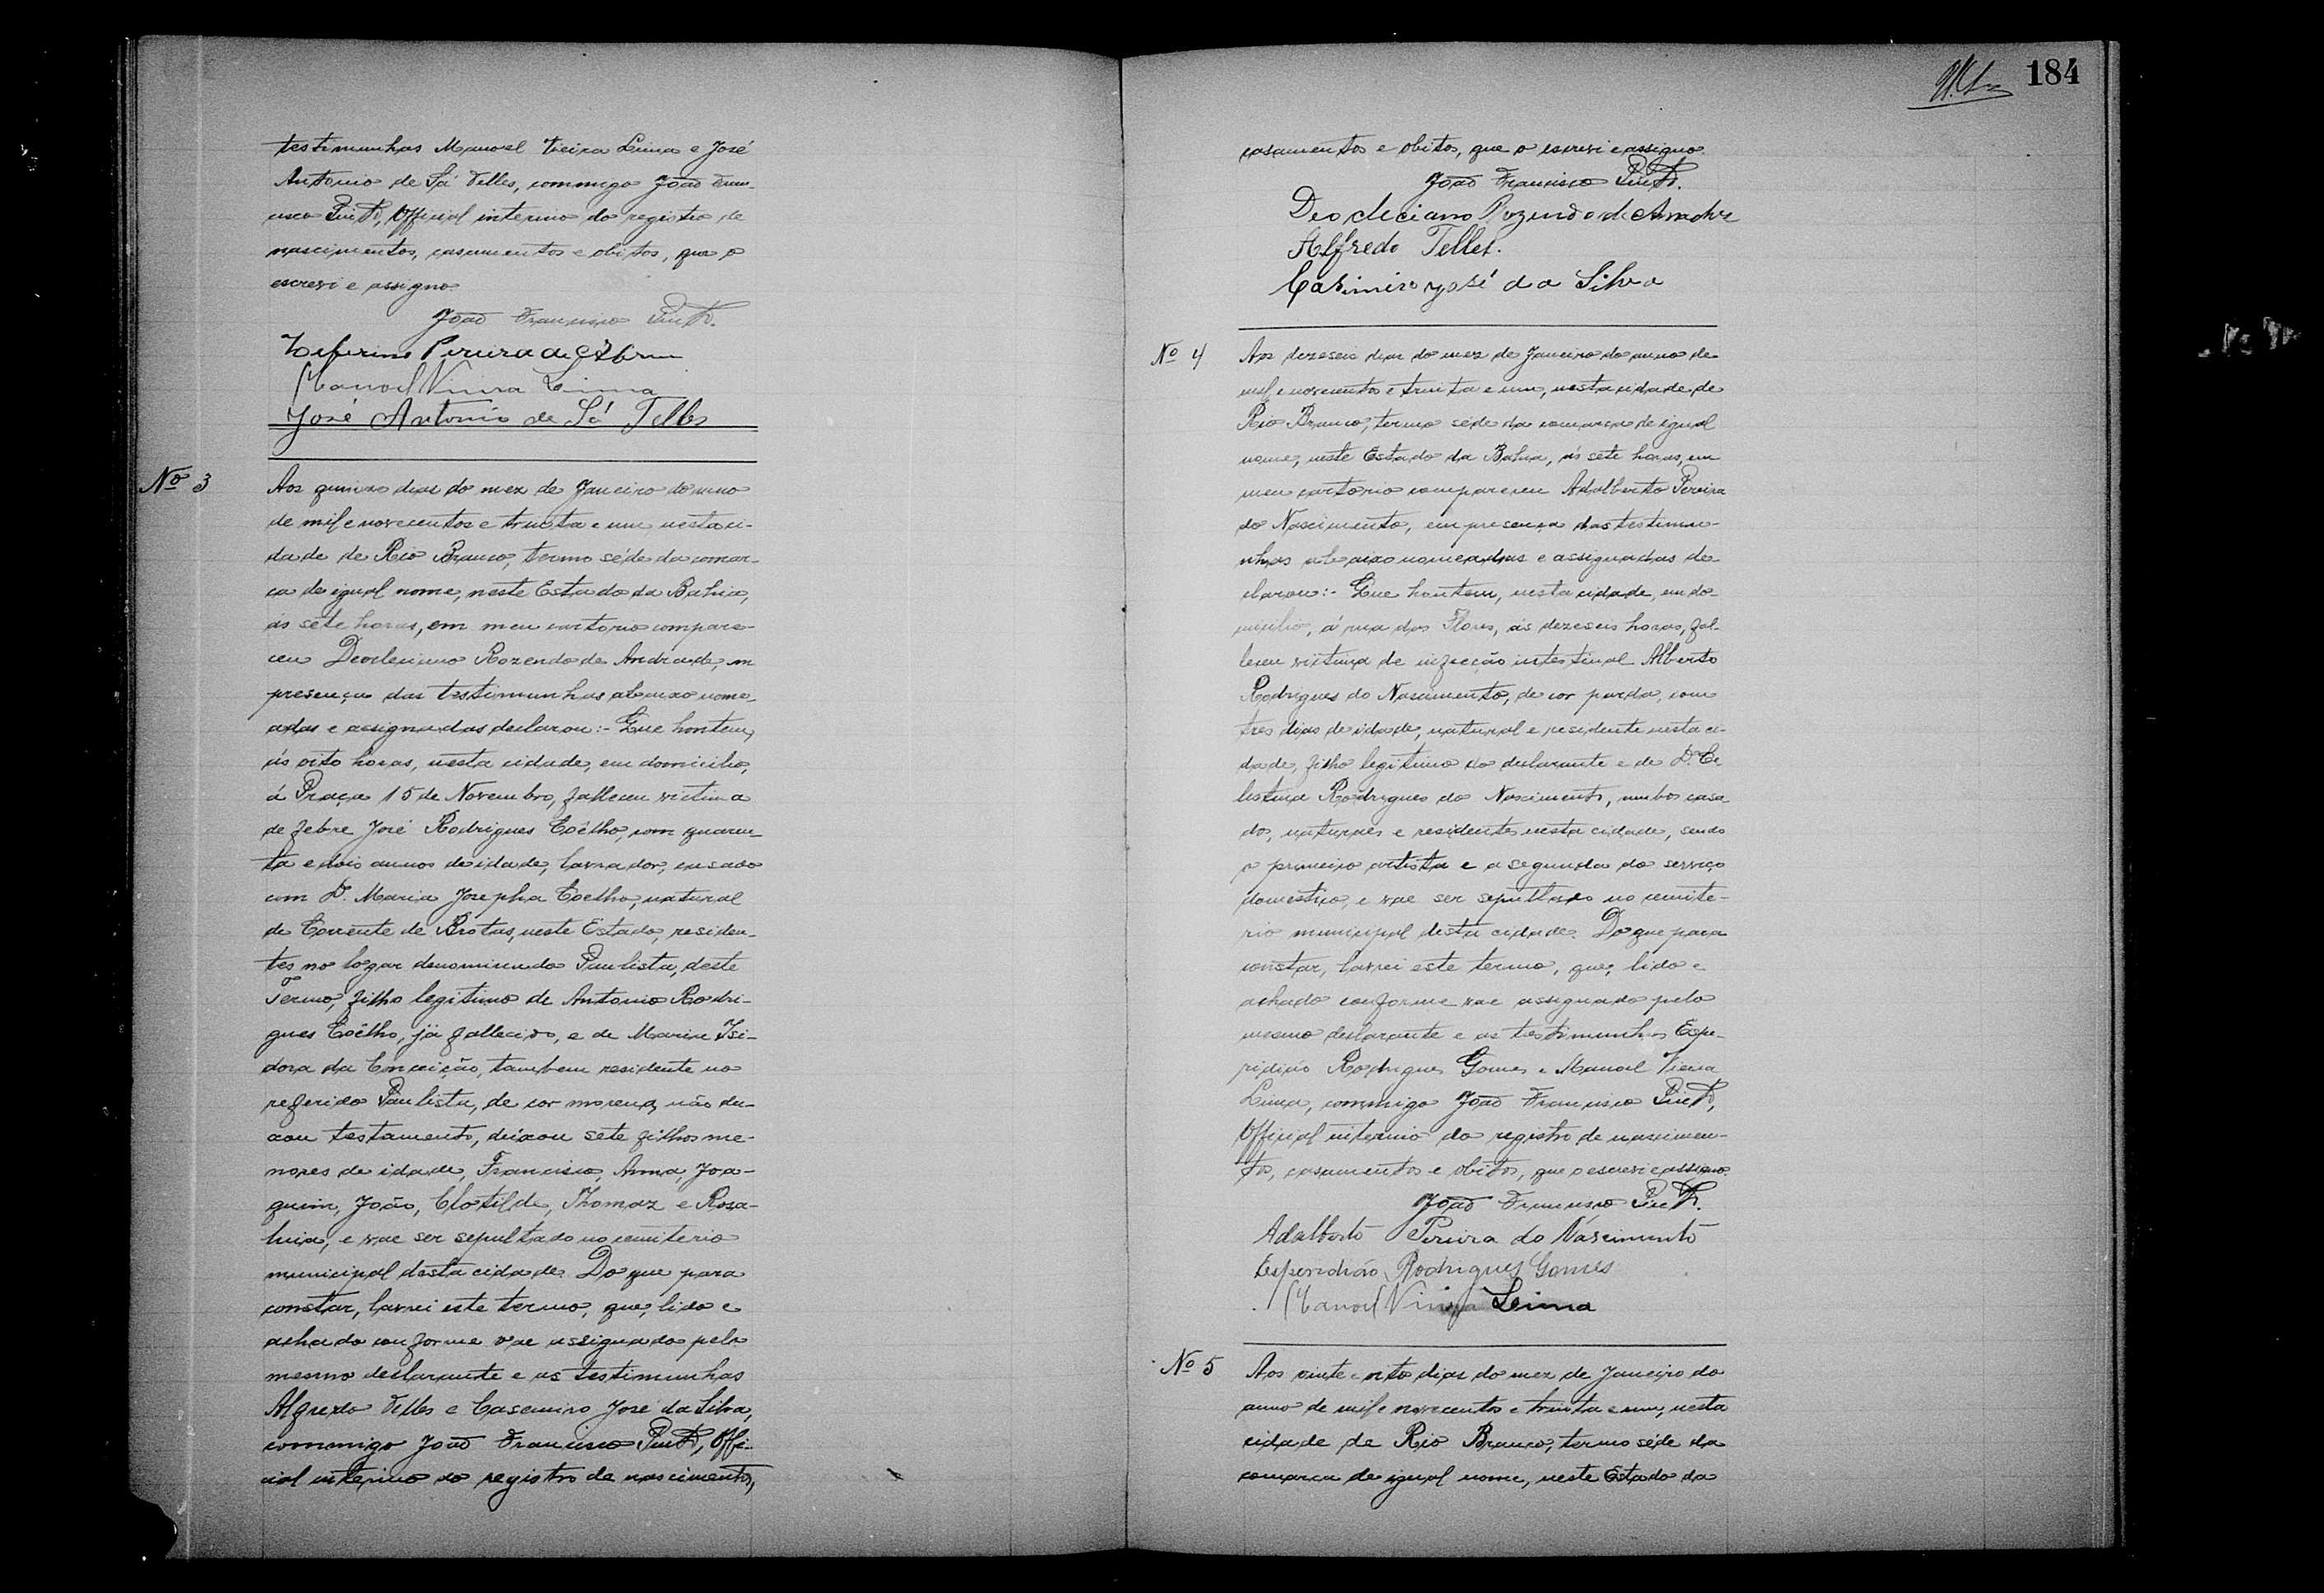 testimunhas Manoel Vieira Lima e José
Antonio de Sá Telles, commigo João Fran-
cisco Pinto, Official interino do registro de
nascimentos, casamentos e obitos, que o
escrevi e assigno
João Francisco Pinto.
Zeferino Pereira de Abreu
Manoel Vieira Lima
José Antonio de Sá Telles
Nº 3
Aos quinze dias do mez de Janeiro do anno
de mil e novecentos e trinta e um, nesta ci-
dade de Rio Branco, termo séde da comar-
ca de igual nome, neste Estado da Bahia,
ás sete horas, em meu cartorio compare-
ceu Deocleciano Rozendo de Andrade, em
presença das testimunhas abaixo nome-
adas e assignadas declarou:- Que hontem,
ás oito horas, nesta cidade, em domicilio,
á Praça 15 de Novembro, falleceu victima
de febre José Rodrigues Coêlho, com quaren-
ta e dois annos de idade, lavrador, casado
com D. Maria Josepha Coelho, natural
de Corrente de Brotas, neste Estado, residen-
tes no logar denominado Paulista, deste
Termo, filho legitimo de Antonio Rodri-
gues Coêlho, já fallecido, e de Maria Isi-
dora da Conceição, tambem residente no
referido Paulista, de cor morena, não dei-
xou testamento, deixou sete filhos me-
nores de idade, Francisco, Anna, Joa-
quim, João, Clotilde, Thomaz e Rosa-
, e vae ser sepultado no cemiterio
municipal desta cidade. Do que para
constar, lavrei este termo, que, lido e
achado conforme vae assignado pelo
mesmo declarante e as testimunhas
Alfredo Telles e Casemiro José da Silva,
commigo João Francisco Pinto, Offi-
cial interino do registro de nascimentos,
184
casamentos e obitos, que o escrevi e assigno.
João Francisco Pinto.
Deocleciano Rozendo de Andrade
Alfredo Telles.
Casimiro José da Silva
Nº 4
Aos dezeseis dias do mez de Janeiro do anno de
mil e novecentos e trinta e um, nesta cidade de
Rio Branco, termo séde da comarca de igual
nome, neste Estado da Bahia, ás sete horas, em
meu cartorio compareceu Adalberto Pereira
do Nascimento, em presença das testimu-
nhas abaixo nomeadas e assignadas de-
clarou:- Que hontem, nesta cidade, em do-
micilio, á rua das Flores, ás dezeseis horas, fal-
leceu victima de infecção intestinal Alberto
Rodrigues do Nascimento, de cor parda, com
tres dias de idade, natural e residente nesta ci-
dade, filho legitimo do declarante e de D. Ce-
lestina Rodrigues do Nascimento, ambos casa-
dos, naturaes e residentes nesta cidade, sendo
o primeiro artista e a segunda do serviço
domestico, e vae ser sepultado no cemite-
rio municipal desta cidade. Do que para
constar, lavrei este termo, que, lido e
achado conforme vae assignado pelo
mesmo declarante e as testimunhas Espe-
ridião Rodrigues Gomes e Manoel Vieira
Lima, commigo João Francisco Pinto,
Official interino do registro de nascimen-
tos, casamentos e obitos, que o escrevi e assigno.
João Francisco Pinto.
Adalberto Pereira do Nascimento
Esperidião Rodrigues Gomes
Manoel Vieira Lima
Nº 5
Aos vinte e oito dias do mez de Janeiro do
anno de mil e novecentos e trinta e um, nesta
cidade de Rio Branco, termo séde da
comarca de igual nome, neste Estado da